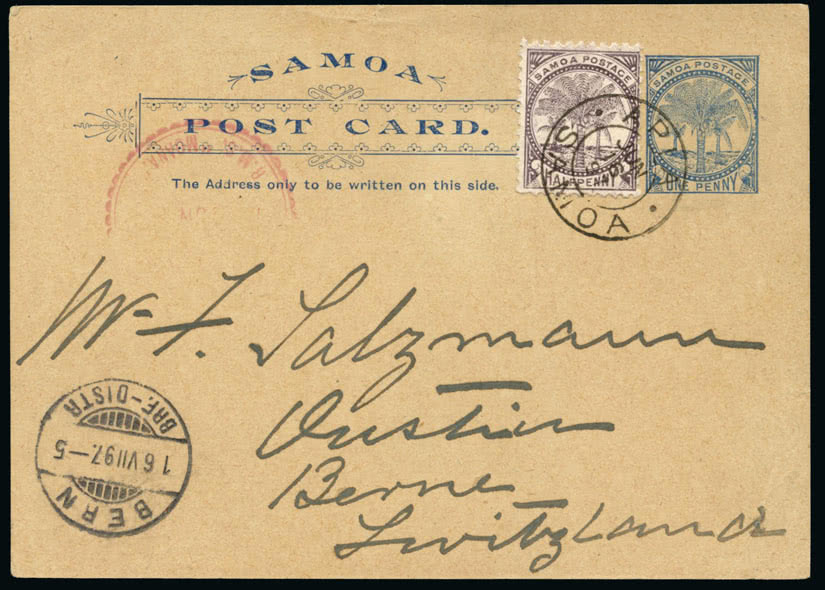 SAMOA
POST CARD.
The Address only to be written on this side.
SAMOA POSTAGE
HALFPENNY
SAMOA POSTAGE
ONE PENNY
APIA
SAMOA
R.M.S.
Mr F. Salzmann
Berne
Switzland
BRF.-DISTR
16 VII 97.–5
BERN